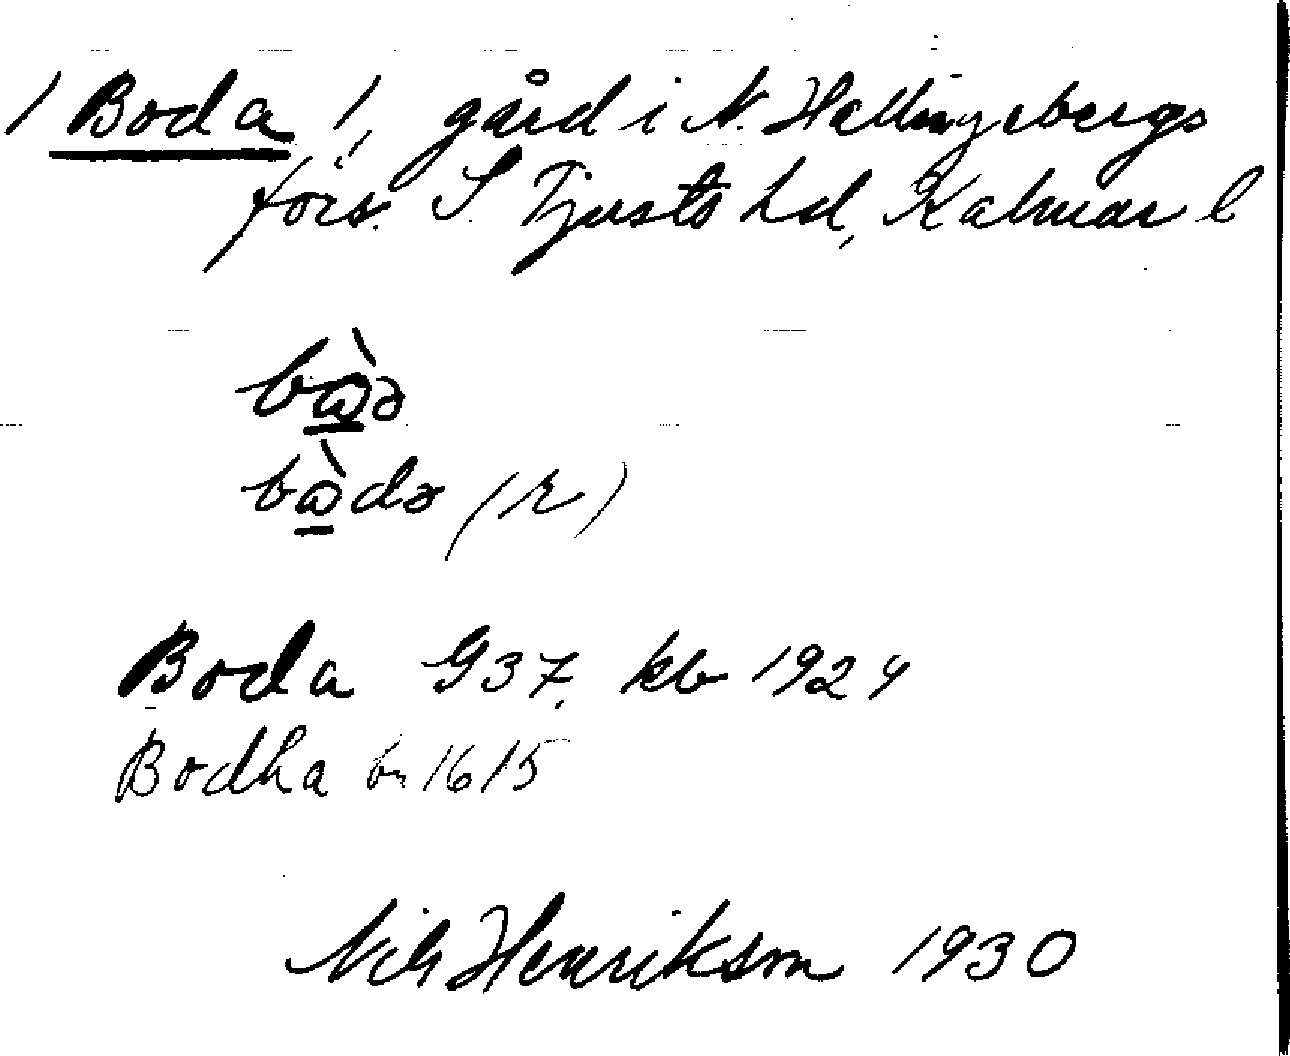 1 Boda 1, gård i N. Hallingebergs
förs. S. Tjusts hd, Kalmar l
bàə
bàdə (r)
Boda G37, kb 1924
Bodha br 1615
Nils Henrikson 1930